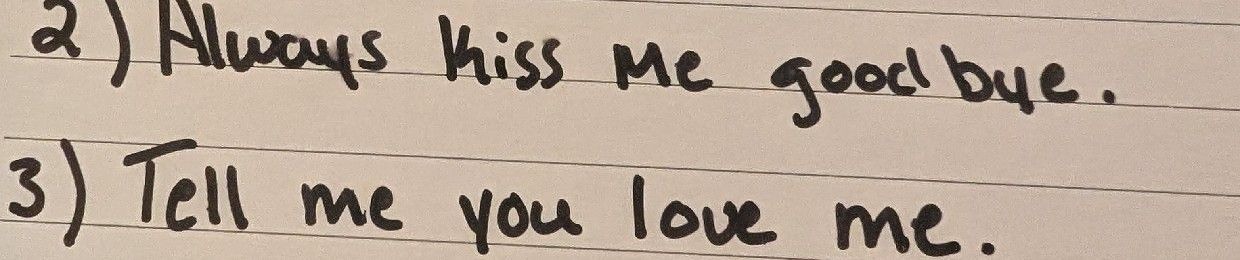 2) Always Kiss Me goodbye.
3) Tell me you love me.